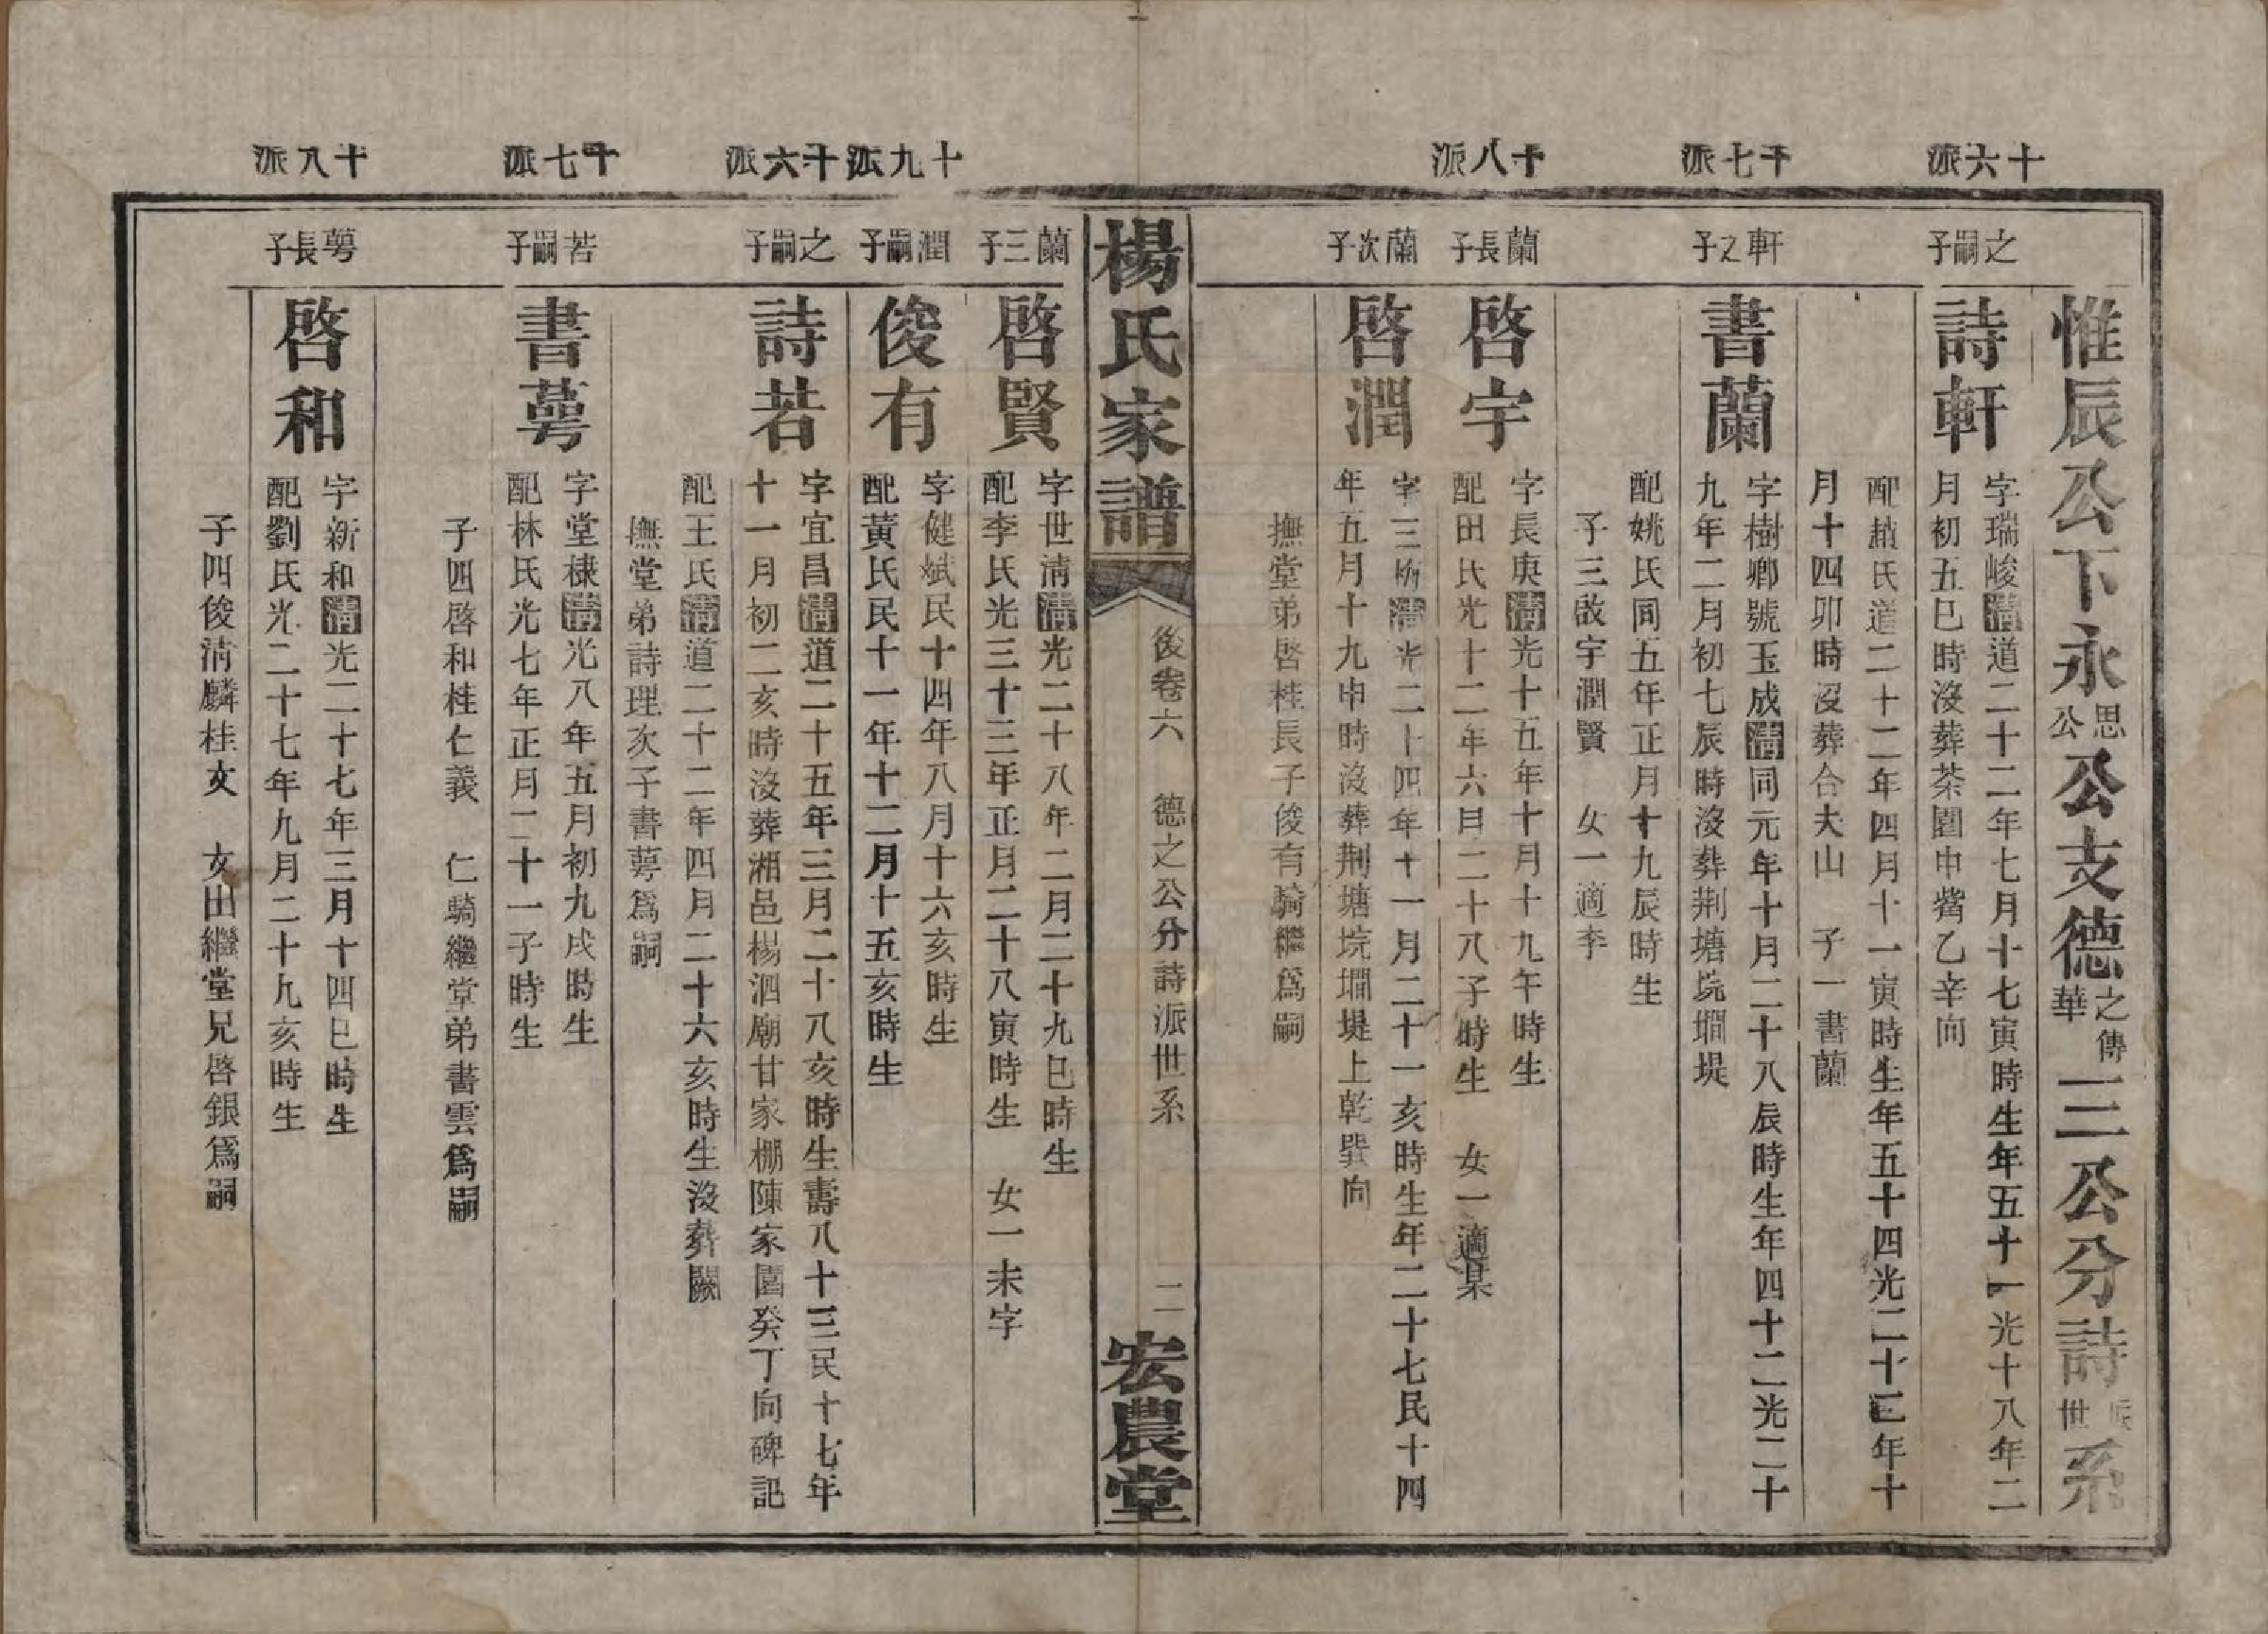 惟辰公下永思公公支德之華傳三公分詩派世系
十六派
之嗣子
詩軒
字瑞峻清道二十二年七月十七寅時生年五十一光十八年二
月初五巳時沒葬茶園申觜乙辛向
配趙氏道二十二年四月十一寅時生年五十四光二十三年十
月十四卯時沒葬合夫山 子一書蘭
十七派
軒之子
書蘭
字樹卿號玉成清同元年十月二十八辰時生年四十二光二十
九年二月初七辰時沒葬荆塘垸壋堤
配姚氏同五年正月十九辰時生
子三啟宇潤賢 女一適李
十八派
蘭長子
啓宇
字長庚清光十五年十月十九午時生
配田氏光十二年六月二十八子時生 女一適某
蘭次子
啓潤
字三清光二十四年十一月二十一亥時生年二十七民十四
年五月十九申時沒葬荆塘垸壋堤上乾巽向
撫堂弟啓桂長子俊有騎繼爲嗣
楊氏家譜
後卷六 德之公分詩派世系 二
宏農堂
蘭三子
啓賢
字世淸清光二十八年二月二十九巳時生
配李氏光三十三年正月二十八寅時生 女一未字
十九派
潤嗣子
俊有
字健斌民十四年八月十六亥時生
配黃氏民十一年十二月十五亥時生
十六派
之嗣子
詩若
字宜昌清道二十五年三月二十八亥時生壽八十三民十七年
十一月初二亥時沒葬湘邑楊泗廟甘家棚陳家園癸丁向碑記
配王氏清道二十二年四月二十六亥時生沒葬闕
撫堂弟詩理次子書萼爲嗣
十七派
若嗣子
書萼
字堂棣清光八年五月初九戌時生
配林氏光七年正月二十一子時生
子四啓和桂仁義 仁騎繼堂弟書雲爲嗣
十八派
萼長子
啓和
字新和清光二十七年三月十四巳時生
配劉氏光二十七年九月二十九亥時生
子四俊淸麟桂文 文出繼堂兄啓銀爲嗣